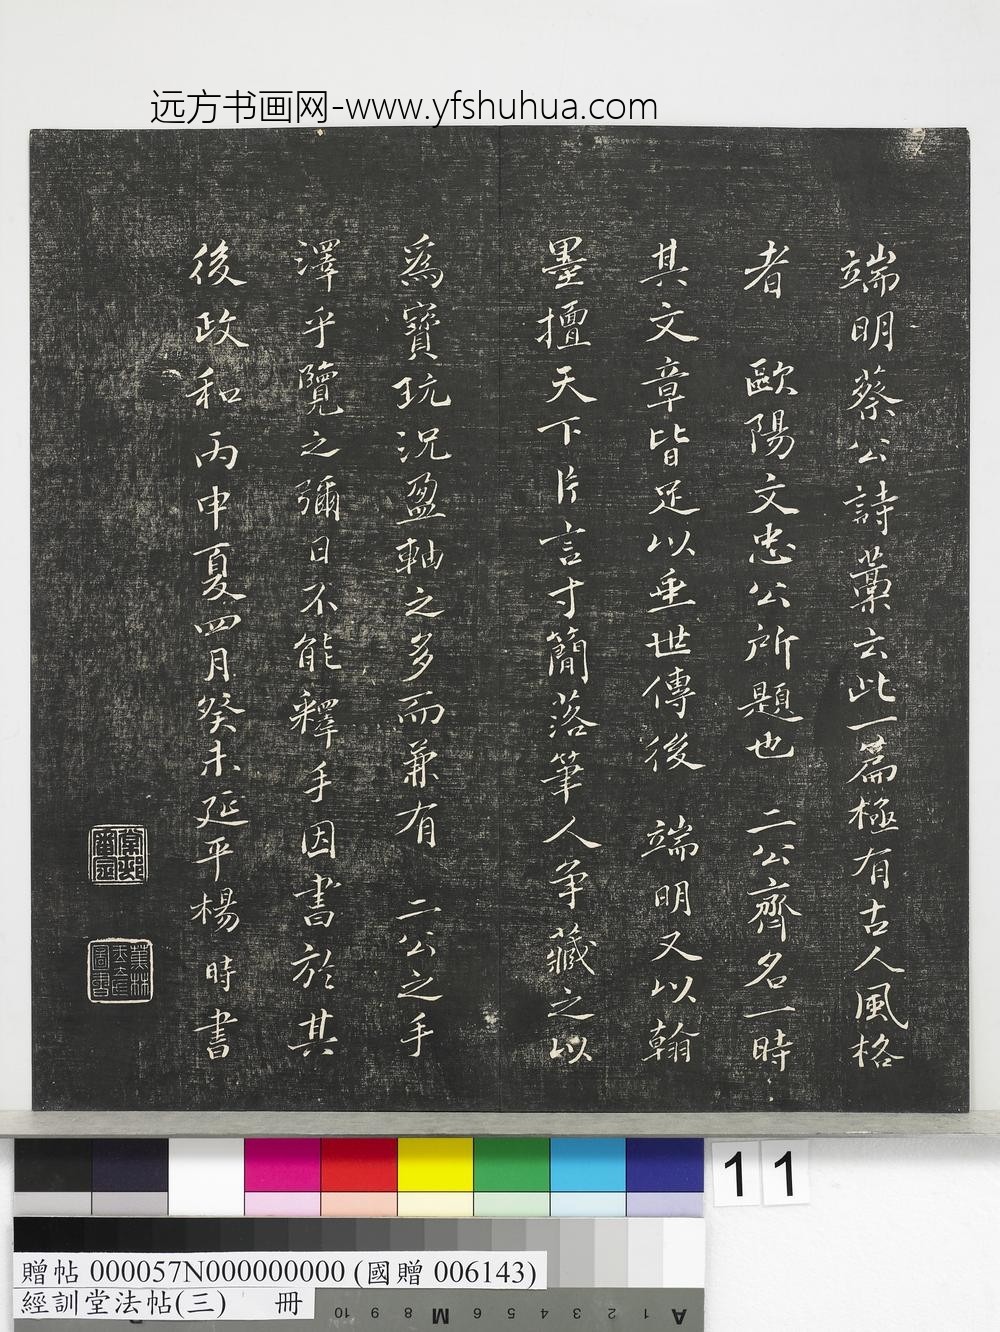 远方书画网-www.yfshuhua.com
端明蔡公詩藁云此一篇極有古人風格
者　歐陽文忠公所題也　二公齊名一時
其文章皆足以垂世傳後　端明又以翰
墨擅天下片言寸簡落筆人爭藏之以
為寶玩況盈軸之多而兼有　二公之手
澤乎覽之彌日不能釋手因書於其
後政和丙申夏四月癸未延平楊　時書
蕉林
玉立氏
圖書
11
贈帖 000057N000000000 (國贈 006143)
經訓堂法帖(三)　冊
10 9 8 M 6 5 4 3 2 1 A